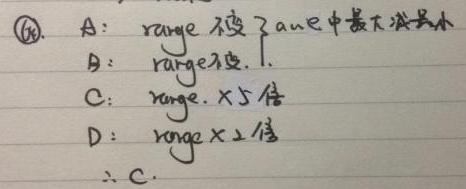 A: range 不变 } ave中最大减最小
B: range不变.
C: range. ×5倍
D: range ×2倍
∴ C.